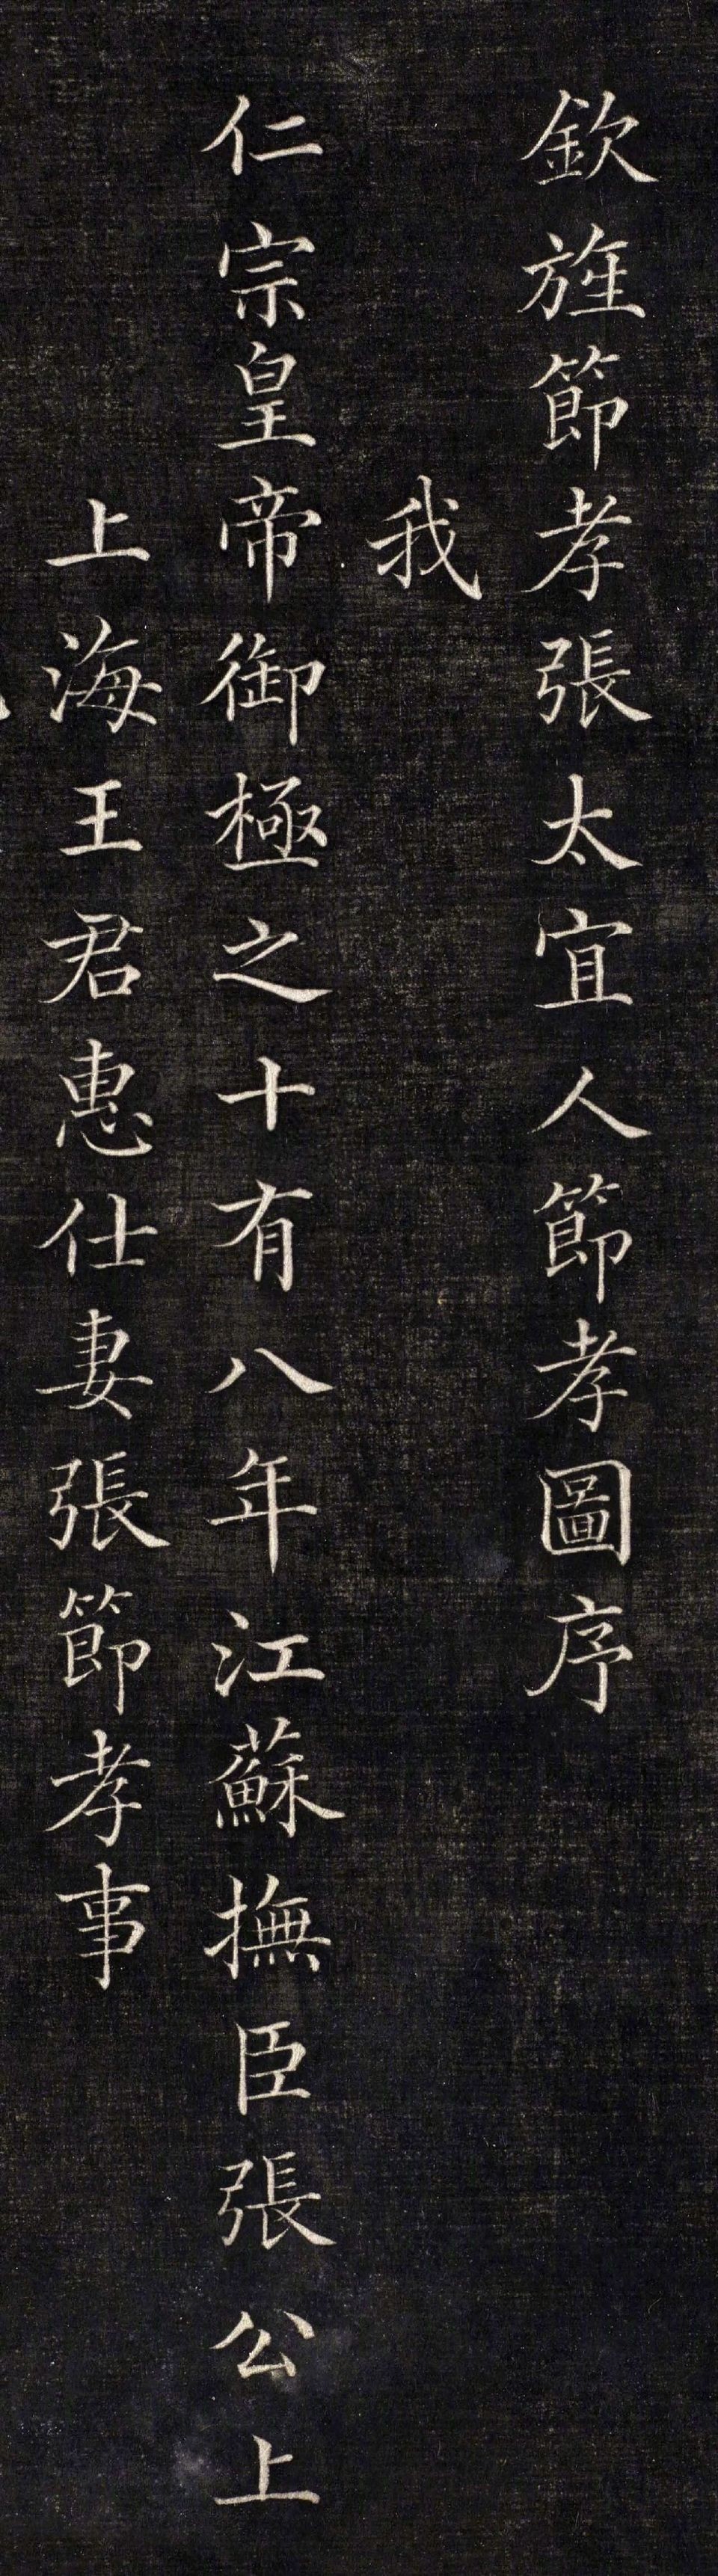 欽旌節孝張太宜人節孝圖序
我
仁宗皇帝御極之十有八年江蘇撫臣張公上
上海王君惠仕妻張節孝事